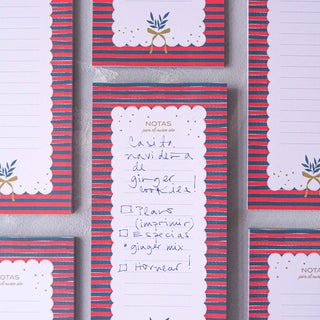 NOTAS
para el nuevo año
Casita
navideña
de
ginger
cookies!
☐ Plano
(imprimir)
☐ Especias
* ginger mix
☐ Hornear!
NOTAS
para el nuevo año
NOTAS